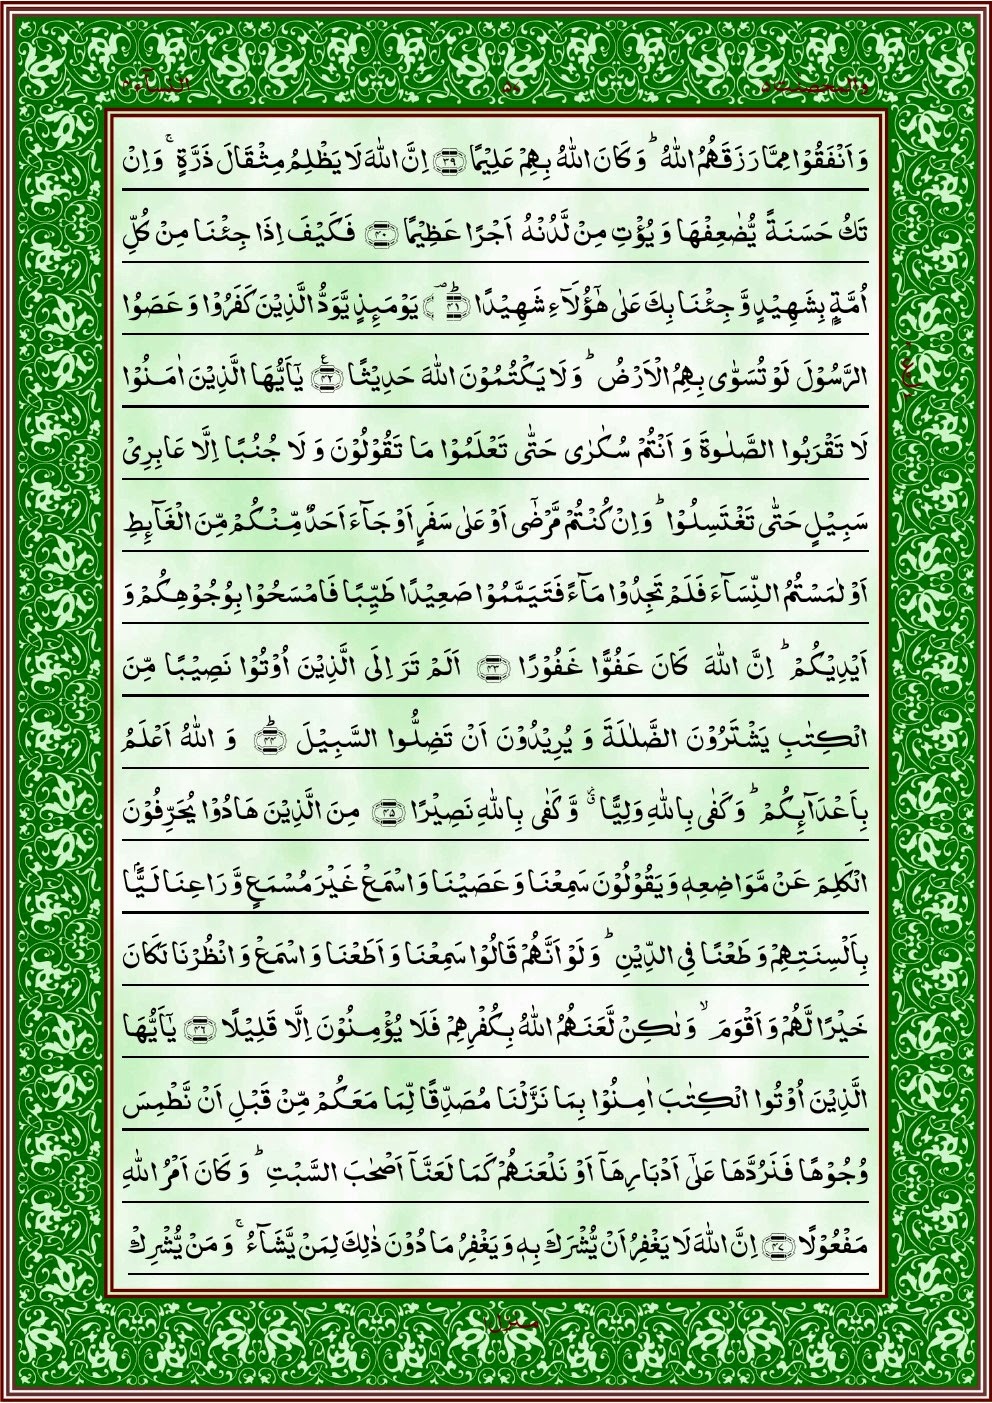 والمحصنت ۵ ۵۶ النسآء ۴
وَ اَنْفَقُوْا مِمَّا رَزَقَهُمُ اللّٰهُ ؕ وَ كَانَ اللّٰهُ بِهِمْ عَلِیْمًا ﴿۳۹﴾ اِنَّ اللّٰهَ لَا یَظْلِمُ مِثْقَالَ ذَرَّةٍ ۚ وَ اِنْ
تَكُ حَسَنَةً یُّضٰعِفْهَا وَ یُؤْتِ مِنْ لَّدُنْهُ اَجْرًا عَظِیْمًا ﴿۴۰﴾ فَكَیْفَ اِذَا جِئْنَا مِنْ كُلِّ
اُمَّةٍۭ بِشَهِیْدٍ وَّ جِئْنَا بِكَ عَلٰی هٰۤؤُلَآءِ شَهِیْدًا ﴿۴۱﴾ؕ یَوْمَىِٕذٍ یَّوَدُّ الَّذِیْنَ كَفَرُوْا وَ عَصَوُا
الرَّسُوْلَ لَوْ تُسَوّٰی بِهِمُ الْاَرْضُ ؕ وَ لَا یَكْتُمُوْنَ اللّٰهَ حَدِیْثًا ﴿۴۲﴾ یٰۤاَیُّهَا الَّذِیْنَ اٰمَنُوْا
لَا تَقْرَبُوا الصَّلٰوةَ وَ اَنْتُمْ سُكٰرٰی حَتّٰی تَعْلَمُوْا مَا تَقُوْلُوْنَ وَ لَا جُنُبًا اِلَّا عَابِرِیْ
سَبِیْلٍ حَتّٰی تَغْتَسِلُوْا ؕ وَ اِنْ كُنْتُمْ مَّرْضٰۤی اَوْ عَلٰی سَفَرٍ اَوْ جَآءَ اَحَدٌ مِّنْكُمْ مِّنَ الْغَآىِٕطِ
اَوْ لٰمَسْتُمُ النِّسَآءَ فَلَمْ تَجِدُوْا مَآءً فَتَیَمَّمُوْا صَعِیْدًا طَیِّبًا فَامْسَحُوْا بِوُجُوْهِكُمْ وَ
اَیْدِیْكُمْ ؕ اِنَّ اللّٰهَ كَانَ عَفُوًّا غَفُوْرًا ﴿۴۳﴾ اَلَمْ تَرَ اِلَی الَّذِیْنَ اُوْتُوْا نَصِیْبًا مِّنَ
الْكِتٰبِ یَشْتَرُوْنَ الضَّلٰلَةَ وَ یُرِیْدُوْنَ اَنْ تَضِلُّوا السَّبِیْلَ ﴿۴۴﴾ؕ وَ اللّٰهُ اَعْلَمُ
بِاَعْدَآىِٕكُمْ ؕ وَ كَفٰی بِاللّٰهِ وَلِیًّا ۗۙ وَّ كَفٰی بِاللّٰهِ نَصِیْرًا ﴿۴۵﴾ مِنَ الَّذِیْنَ هَادُوْا یُحَرِّفُوْنَ
الْكَلِمَ عَنْ مَّوَاضِعِهٖ وَ یَقُوْلُوْنَ سَمِعْنَا وَ عَصَیْنَا وَ اسْمَعْ غَیْرَ مُسْمَعٍ وَّ رَاعِنَا لَیًّۢا
بِاَلْسِنَتِهِمْ وَ طَعْنًا فِی الدِّیْنِ ؕ وَ لَوْ اَنَّهُمْ قَالُوْا سَمِعْنَا وَ اَطَعْنَا وَ اسْمَعْ وَ انْظُرْنَا لَكَانَ
خَیْرًا لَّهُمْ وَ اَقْوَمَ ۙ وَ لٰكِنْ لَّعَنَهُمُ اللّٰهُ بِكُفْرِهِمْ فَلَا یُؤْمِنُوْنَ اِلَّا قَلِیْلًا ﴿۴۶﴾ یٰۤاَیُّهَا
الَّذِیْنَ اُوْتُوا الْكِتٰبَ اٰمِنُوْا بِمَا نَزَّلْنَا مُصَدِّقًا لِّمَا مَعَكُمْ مِّنْ قَبْلِ اَنْ نَّطْمِسَ
وُجُوْهًا فَنَرُدَّهَا عَلٰۤی اَدْبَارِهَاۤ اَوْ نَلْعَنَهُمْ كَمَا لَعَنَّاۤ اَصْحٰبَ السَّبْتِ ؕ وَ كَانَ اَمْرُ اللّٰهِ
مَفْعُوْلًا ﴿۴۷﴾ اِنَّ اللّٰهَ لَا یَغْفِرُ اَنْ یُّشْرَكَ بِهٖ وَ یَغْفِرُ مَا دُوْنَ ذٰلِكَ لِمَنْ یَّشَآءُ ۚ وَ مَنْ یُّشْرِكْ
منزل ۱